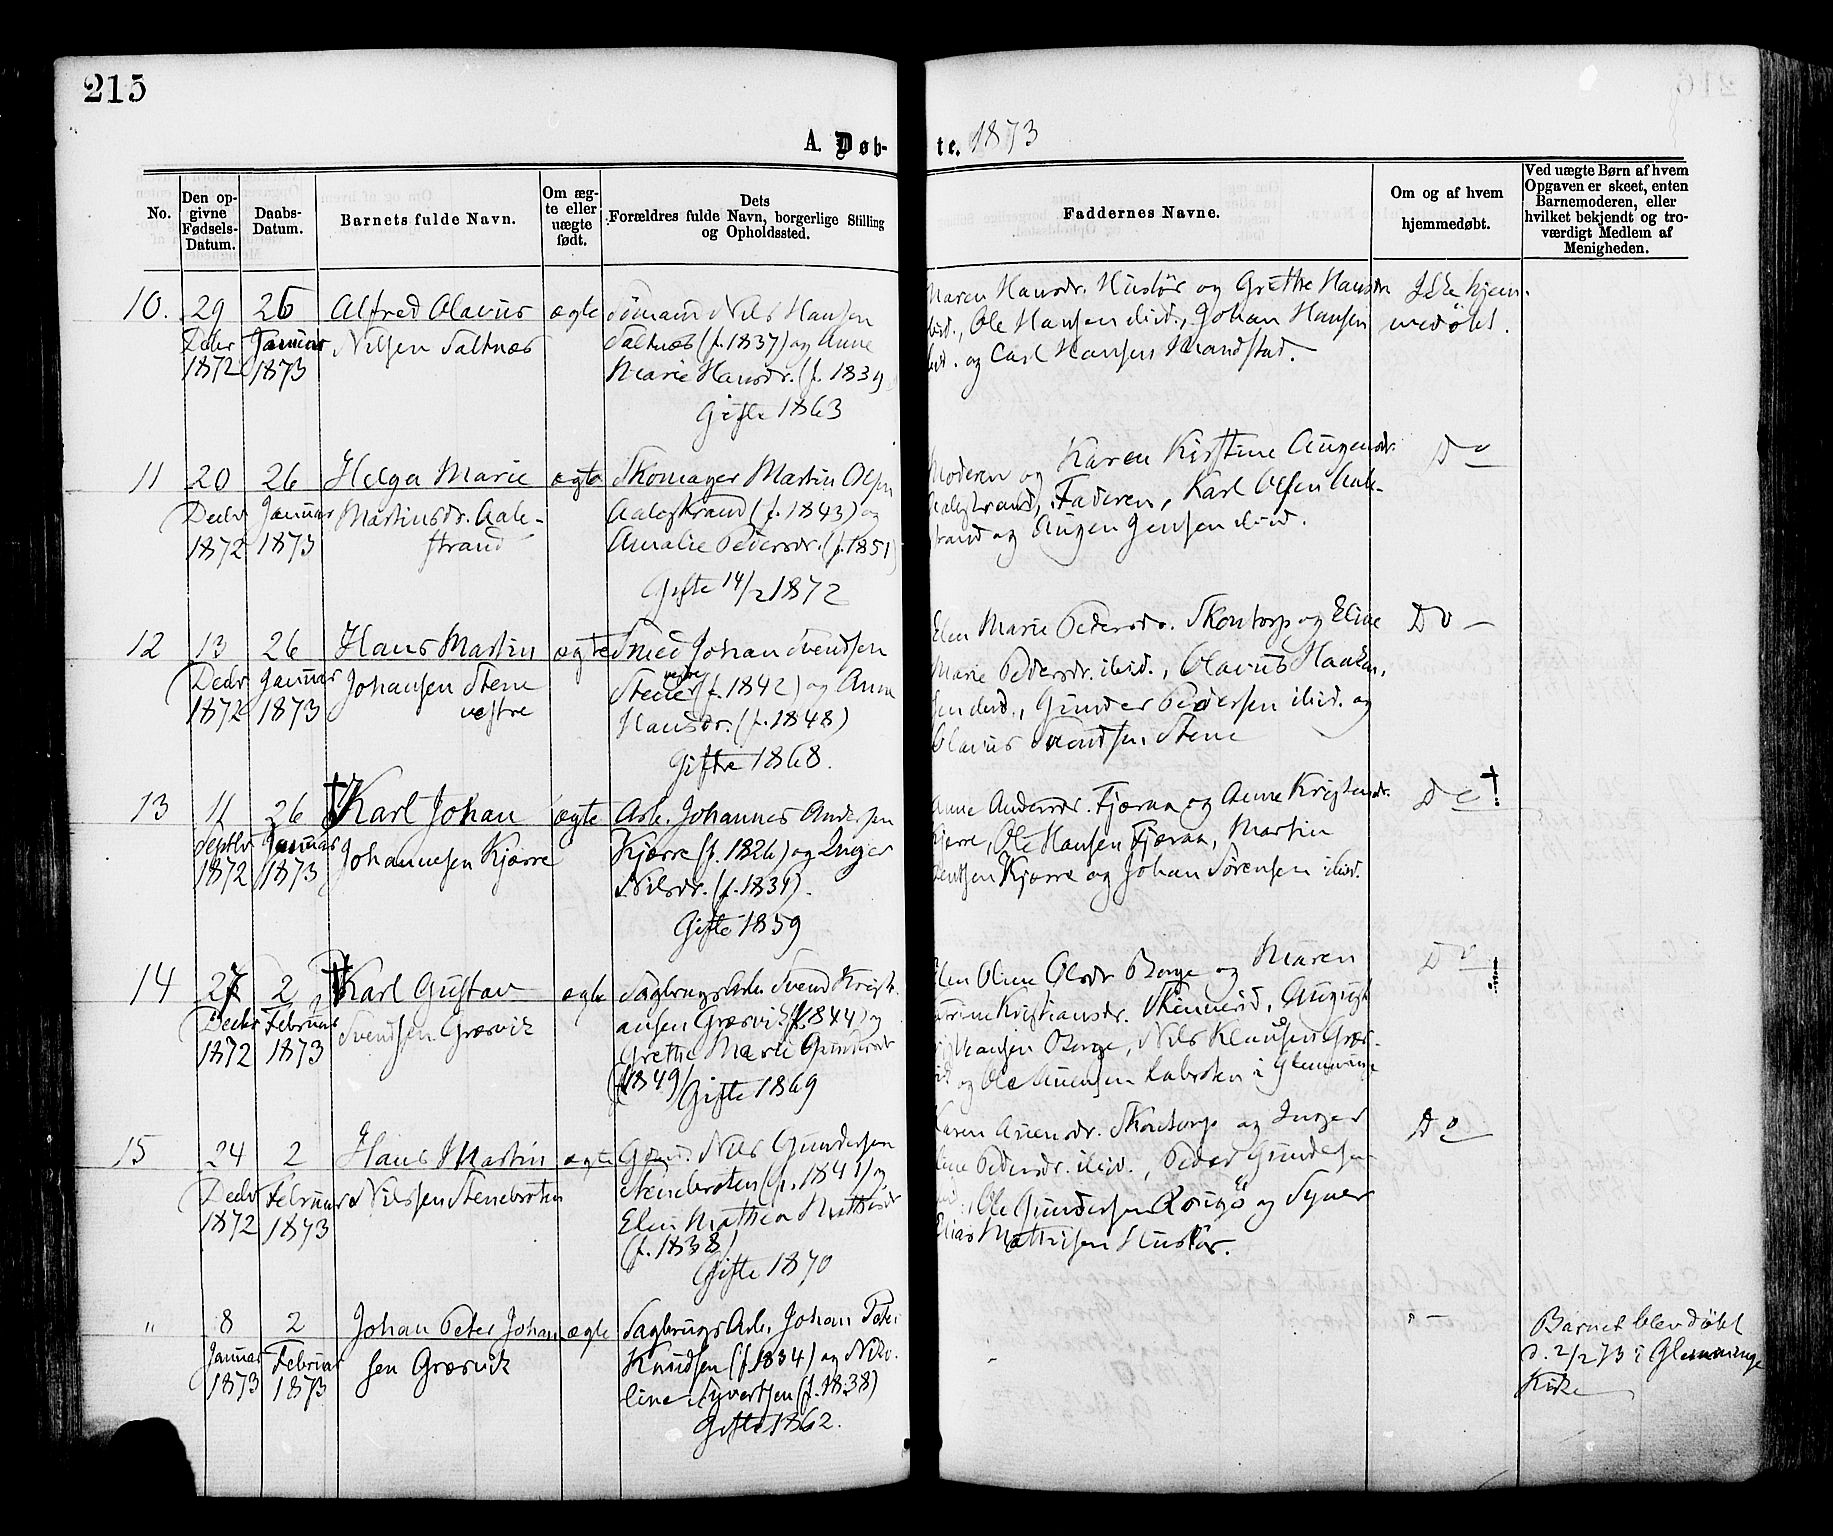 215
A. Døb-
te. 1873
No.
Den op-
givne
Fødsels-
Datum.
Daabs-
Datum.
Barnets fulde Navn.
Om æg-
te eller
uægte
født.
Dets
Forældres fulde Navn, borgerlige Stilling
og Opholdssted.
Faddernes Navne.
Om og af hvem
hjemmedøbt.
Ved uægte Børn af hvem
Opgaven er skeet, enten
Barnemoderen, eller
hvilket bekjendt og tro-
værdigt Medlem af
Menigheden.
10.
29
Decbr
1872
26
Januar
1873
Alfred Olavus
Nilsen Saltnæs
ægte
Sømand Nils Hansen
Saltnæs (f. 1837) og Anne
Marie Hansdr. (f. 1839
Gifte 1863
Maren Hansdr. Huslør og Grethe Hansdr
ibid., Ole Hansen ibid., Johan Hansen
ibid. og Carl Hansen Strandstad.
Ikke hjem-
medøbt.
11
20
Decbr
1872
26
Januar
1873
Helga Marie
Martinsdr. Aale-
strand
ægte
Skomager Martin Olsen
Aalestrand (f. 1843) og
Amalie Pedersdr. (f. 1851)
Gifte 14/2 1872
Moderen og Karen Kirstine Augensdr.
Aalestrand, Faderen, Karl Olsen Aale-
strand og Augen Jensen ibid.
Do
12
13
Decbr
1872
26
Januar
1873
Hans Martin
Johansen Stene
vestre
ægte
Smed Johan Svendsen
Stene vestre (f. 1842) og Anne
Hansdr. (f. 1848)
Gifte 1868.
Elen Marie Pedersdr. Skontorp og Eline
Marie Pedersdr. ibid., Olavus Haaken-
sen ibid., Gunder Pedersen ibid. og
Olavus Svendsen Stene
Do –
13
11
Septbr
1872
26
Januar
1873
† Karl Johan
Johannesen Kjærre
ægte
Arb. Johannes Andersen
Kjærre (f. 1826) og Inger
Nilsdr. (f. 1839).
Gifte 1859
Anne Andersdr. Fjæraa og Anne Kristensdr.
Kjærre, Ole Hansen Fjæraa, Martin
Kjærre og Johan Sørensen ibid.
Do †
14
27
Decbr
1872
2
Februar
1873
† Karl Gustav
Svendsen Græsvik
ægte
SagbrugsArb. Svend Kristi-
ansen Græsvik (f. 1844) og
Grethe Marie Gundersdr
(f. 1849) Gifte 1869
Elen Oline Olsdr Borge og Maren
Kristiansdr. August
Borge, Nils Klausen Græs-
vik og Ole i Glemminge
Do
15
24
Decbr
1872
2
Februar
1873
Hans Martin
Nilssen Stenebroten
ægte
Gbrd. Nils Gundersen
Stenebroten (f. 1841) og
Elen Mathea Mathisdr
(f. 1838)
Gifte 1870
Karen Arnensdr. Skontorp og Inger
Eline Pedersdr. ibid., Peder Gundersen
ibid., Ole Gundersen og Syver
Elias Mathisen Huslør.
Do
"
8
Januar
1873
2
Februar
1873
Johan Peter Johan-
sen Græsvik
ægte
SagbrugsArb. Johan Peter
Knudsen (f. 1834) og Niko-
line Syvertsen (f. 1838)
Gifte 1862.
" –
Barnet blev døbt
d. 2/2 73 i Glemminge
Kirke